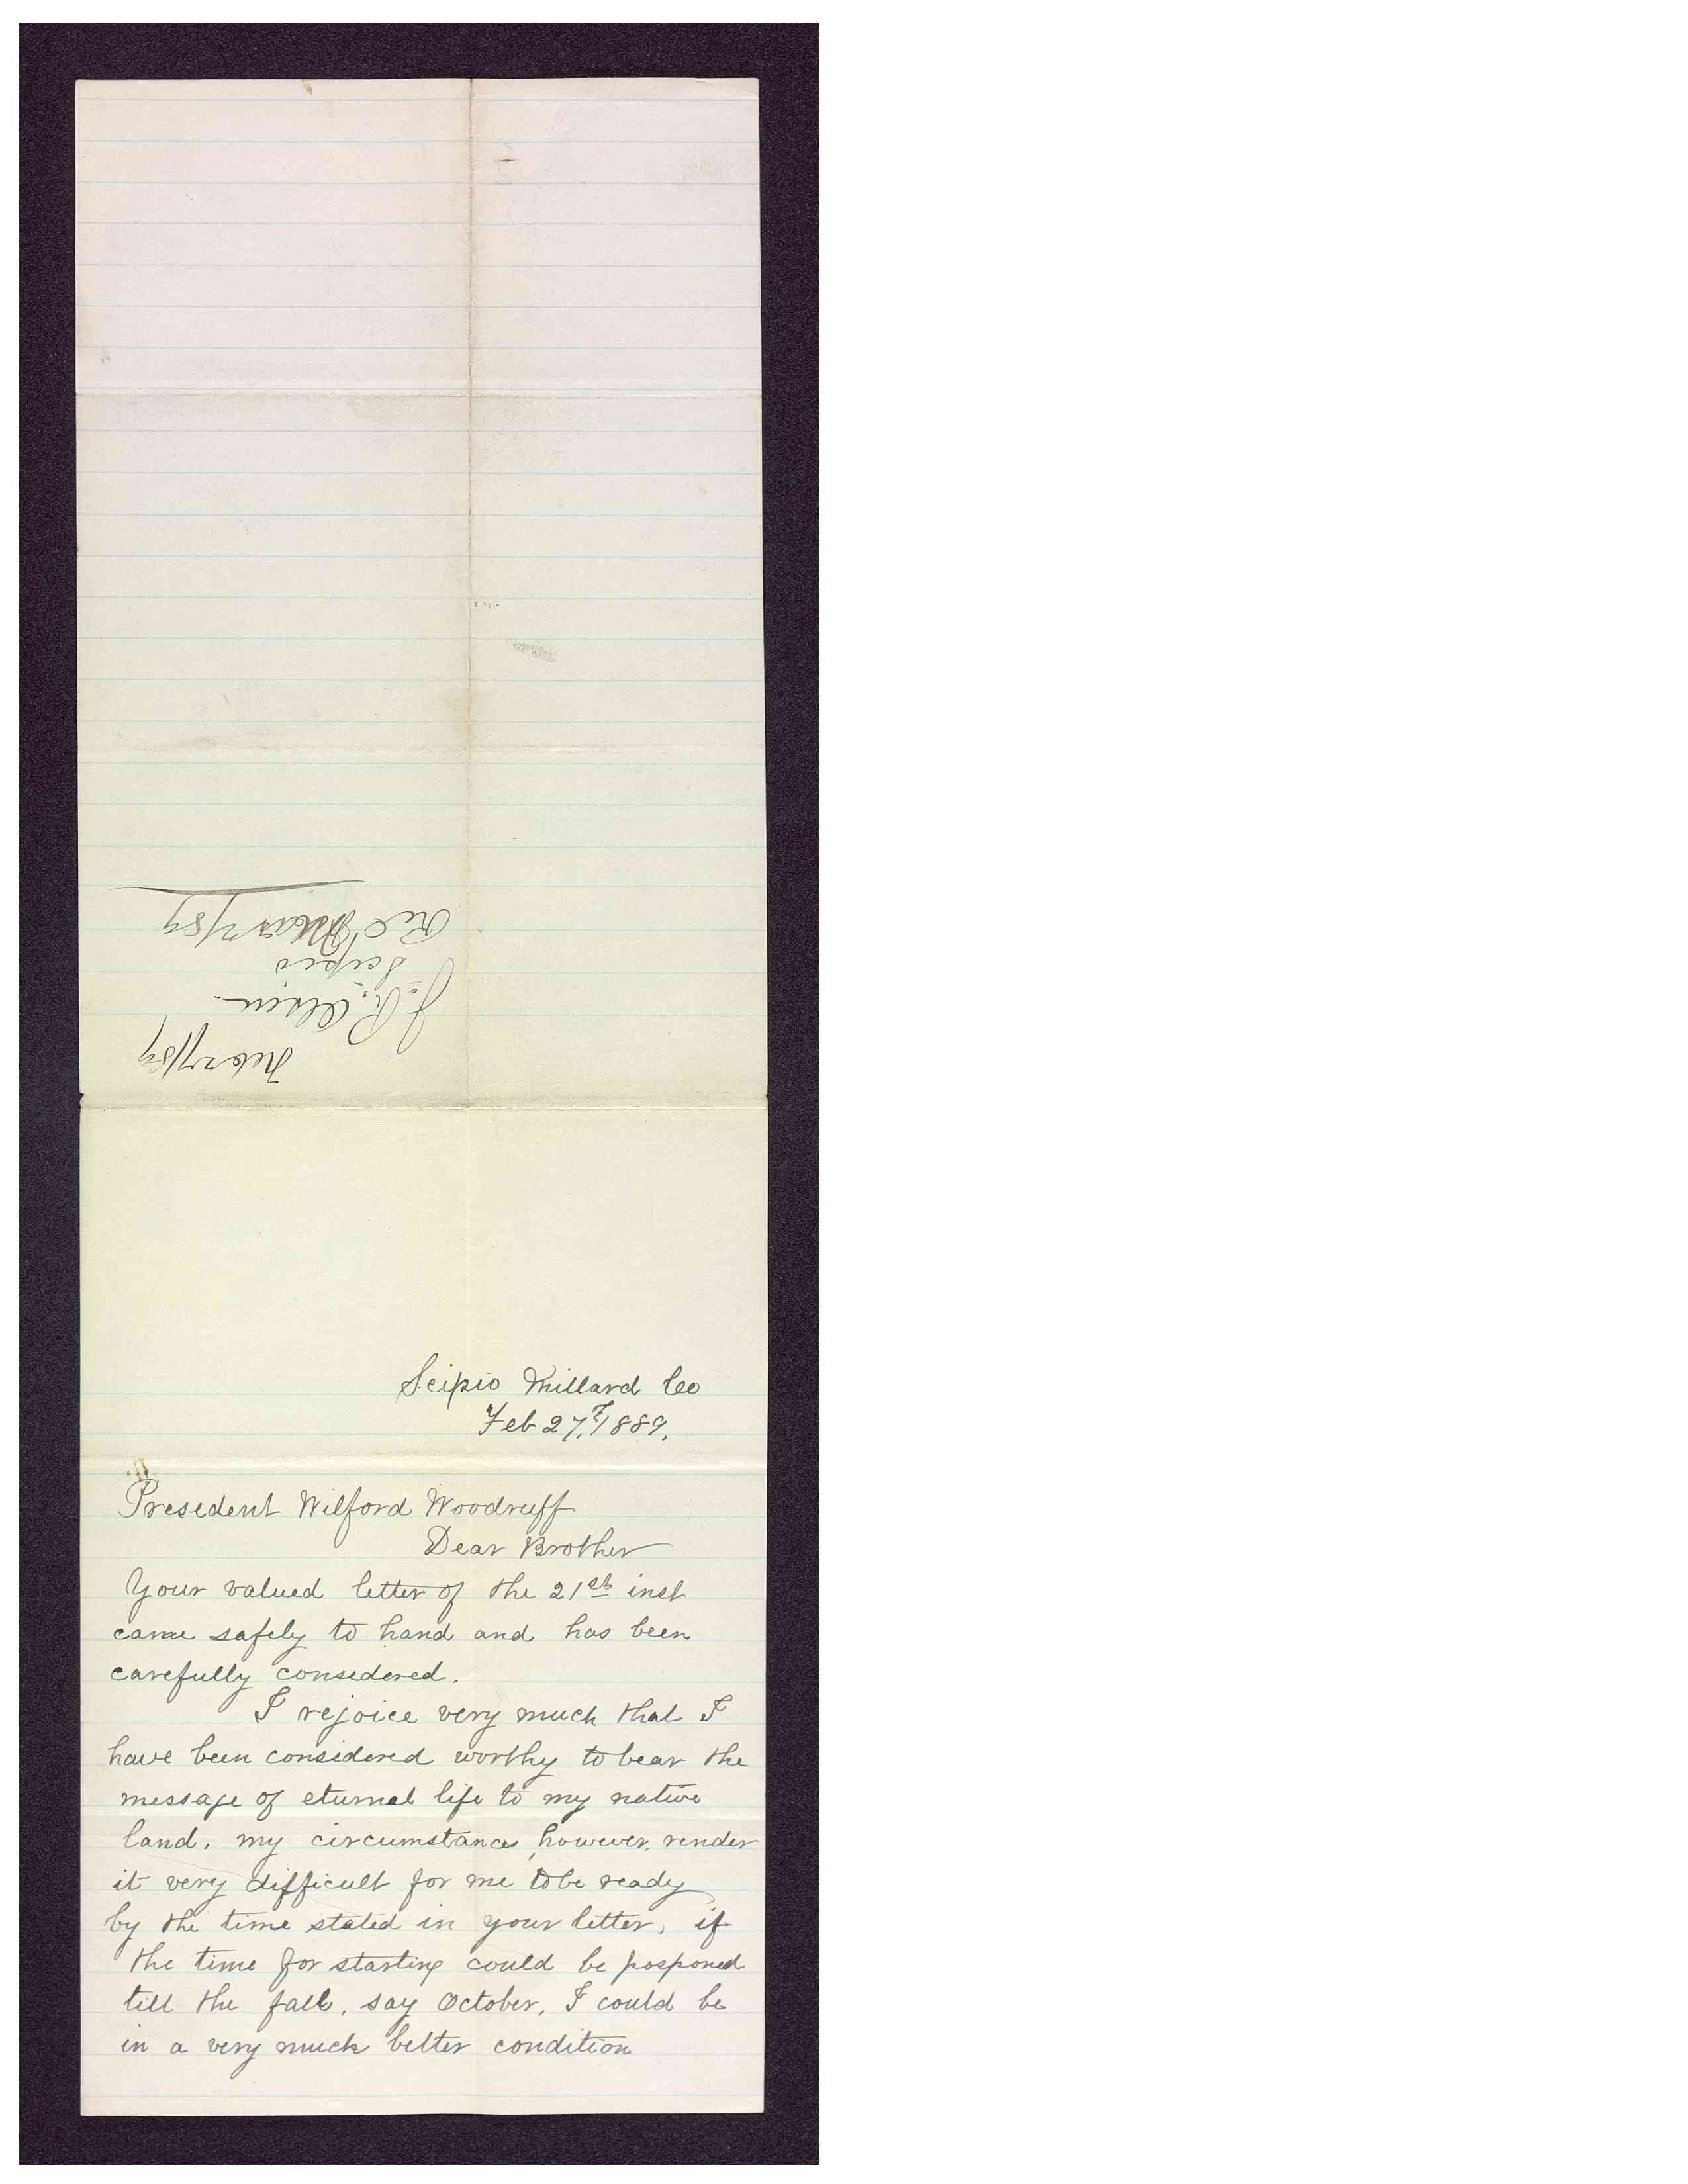 Feb 27/89
J. R. Olsen
Scipio
Rec Mar 2/89
Scipio Millard Co
Feb 27, 1889.
Presedent Wilford Woodruff
Dear Brother
Your valued letter of the 21st inst
came safely to hand and has been
carefully considered.
I rejoice very much that I
have been considered worthy to bear the
message of eturnal life to my native
land. my circumstances, however, render
it very difficult for me to be ready
by the time stated in your letter, if
the time for starting could be posponed
till the fall, say October, I could be
in a very much better condition